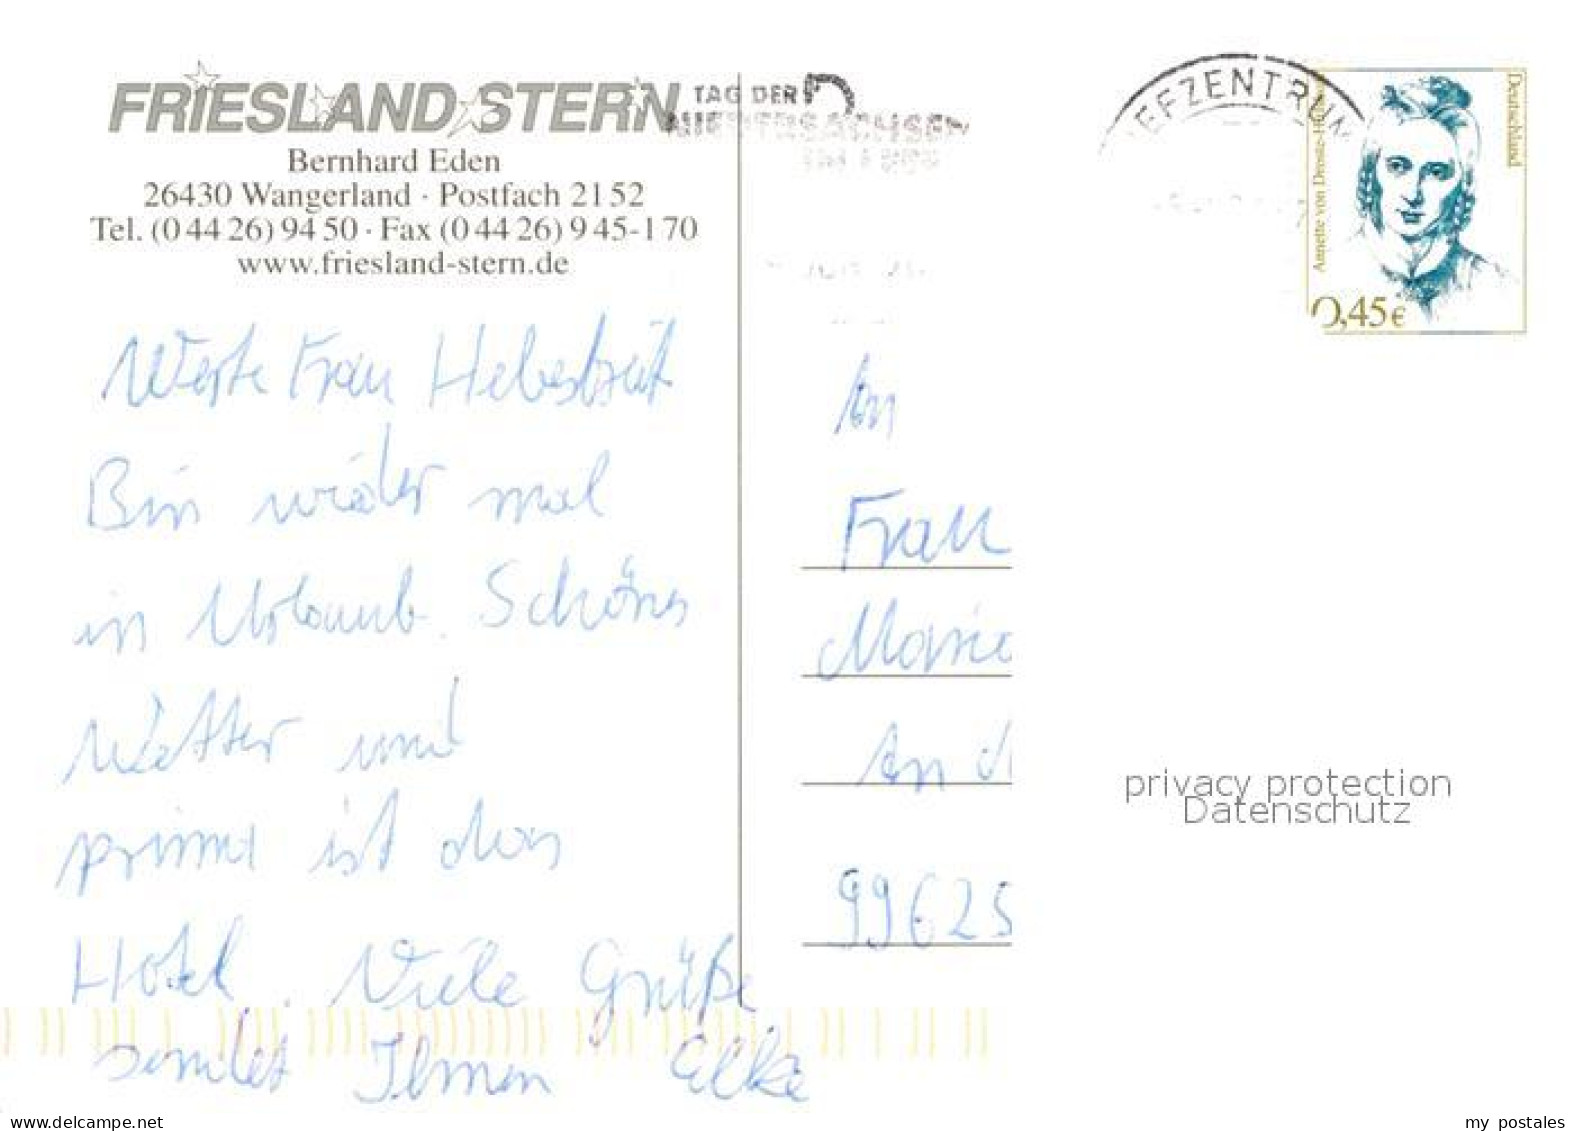 FRIESLAND STERN
Bernhard Eden
26430 Wangerland · Postfach 21 52
Tel. (0 44 26) 94 50 · Fax (0 44 26) 9 45-1 70
www.friesland-stern.de
TAG DER
NIEDERSACHSEN
EFZENTRUM
Deutschland
Annette von Droste-H
0,45€
Werte Frau
Bin wieder mal
in Urlaub. Schönes
Wetter und
prima ist das
Hotel. Viele Grüße
sendet Ihnen Elke
An
Frau
Maria
An d
99625
privacy protection
Datenschutz
www.delcampe.net
my_postales